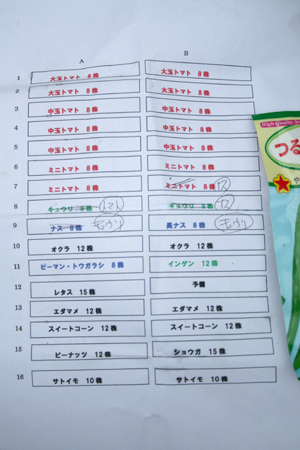 A B
1 大玉トマト 8株 大玉トマト 8株
2 大玉トマト 8株 大玉トマト 8株
3 中玉トマト 8株 中玉トマト 8株
4 中玉トマト 8株 中玉トマト 8株
5 中玉トマト 8株 中玉トマト 8株
6 ミニトマト 8株 ミニトマト 8株
7 ミニトマト 8株 ミニトマト 8株
8 キュウリ 8株 キュウリ 8株
9 ナス 8株 長ナス 8株
10 オクラ 12株 オクラ 12株
11 ピーマン・トウガラシ 8株 インゲン 12株
12 レタス 15株 予備
13 エダマメ 12株 エダマメ 12株
14 スイートコーン 12株 スイートコーン 12株
15 ピーナッツ 12株 ショウガ 15株
16 サトイモ 10株 サトイモ 10株
High-Quality
つる